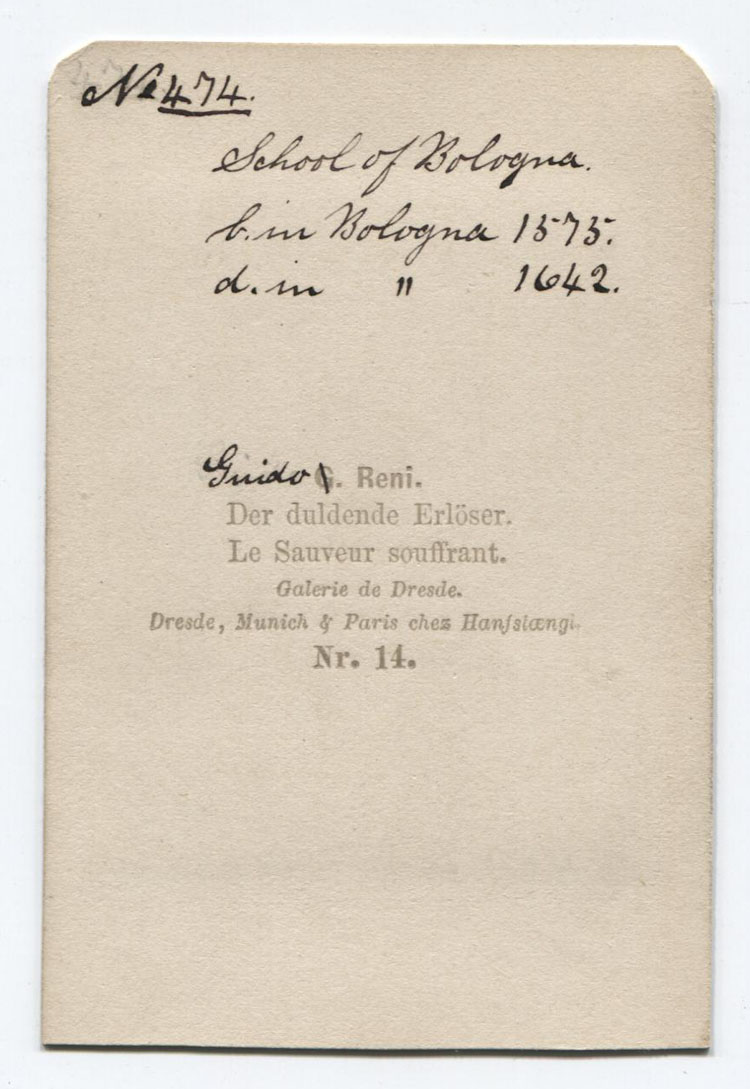 No 474.
School of Bologna.
b. in Bologna 1575.
d. in " 1642.
Guido G. Reni.
Der duldende Erlöser.
Le Sauveur souffrant.
Galerie de Dresde.
Dresde, Munich & Paris chez Hanfstængl.
Nr. 14.